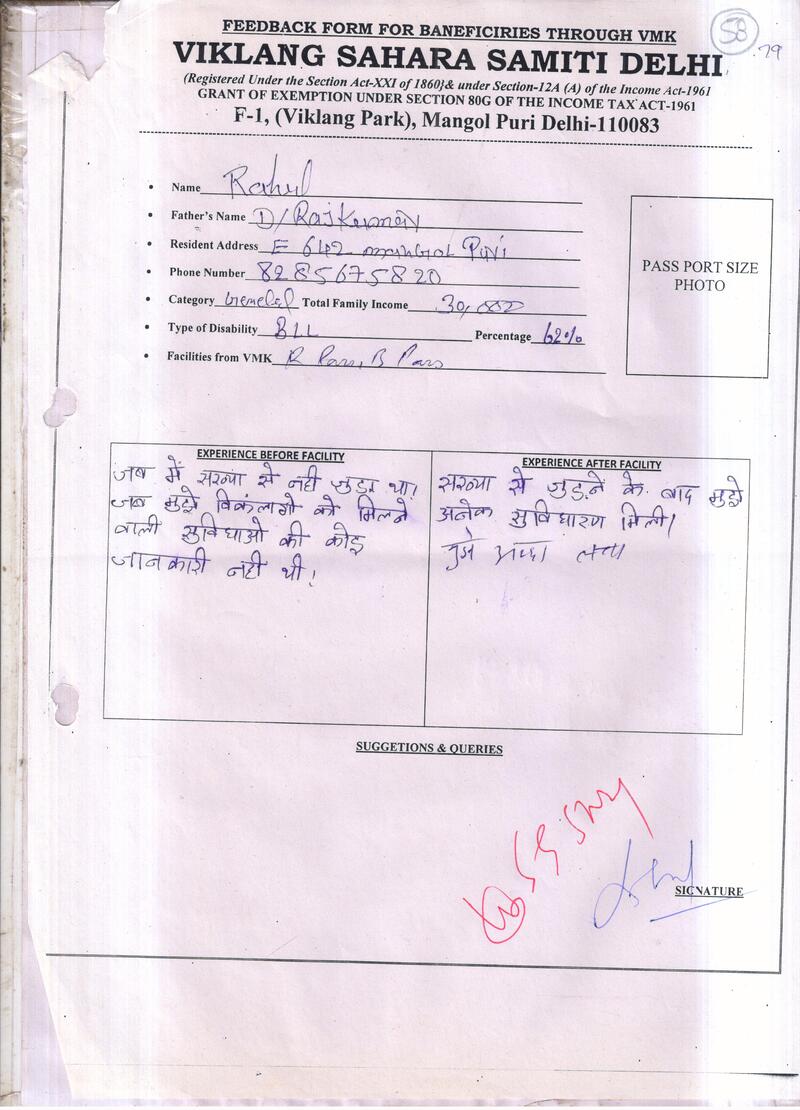 58
79
FEEDBACK FORM FOR BANEFICIRIES THROUGH VMK
VIKLANG SAHARA SAMITI DELHI
(Registered Under the Section Act-XXI of 1860}& under Section-12A (A) of the Income Act-1961
GRANT OF EXEMPTION UNDER SECTION 80G OF THE INCOME TAX ACT-1961
F-1, (Viklang Park), Mangol Puri Delhi-110083
• Name Rahul
• Father's Name D/ Rajkumar
• Resident Address E 642 mangol Puri
• Phone Number 8285675820
• Category Total Family Income 30,000
• Type of Disability BLL Percentage 62%
• Facilities from VMK R Pass, B Pass
PASS PORT SIZE
PHOTO
EXPERIENCE BEFORE FACILITY
जब में सस्थां से नही जुडा था।
जब मुझे विकंलागो को मिलने
वाली सुविधाओ की कोइ
जानकारी नही थी।
EXPERIENCE AFTER FACILITY
सस्थां से जुड़ने के बाद मुझे
अनेक सुविधाएं मिली।
मुझे अच्छा लगा
SUGGETIONS & QUERIES
SIGNATURE